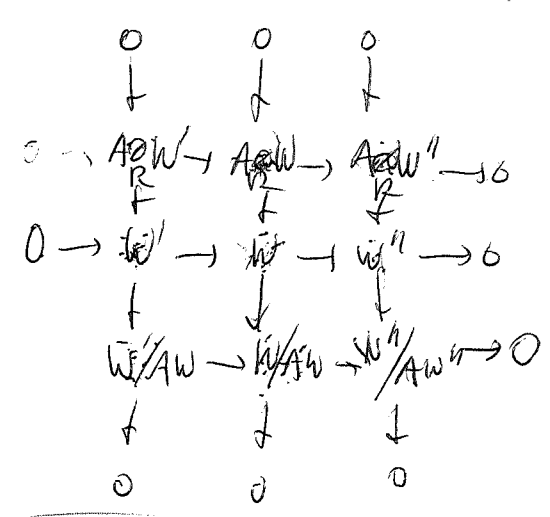 0 0 0
0 → A⊗W' → A⊗W → A⊗W'' → 0
R R R
0 → W' → W → W'' → 0
W'/AW → W/AW → W''/AW'' → 0
0 0 0